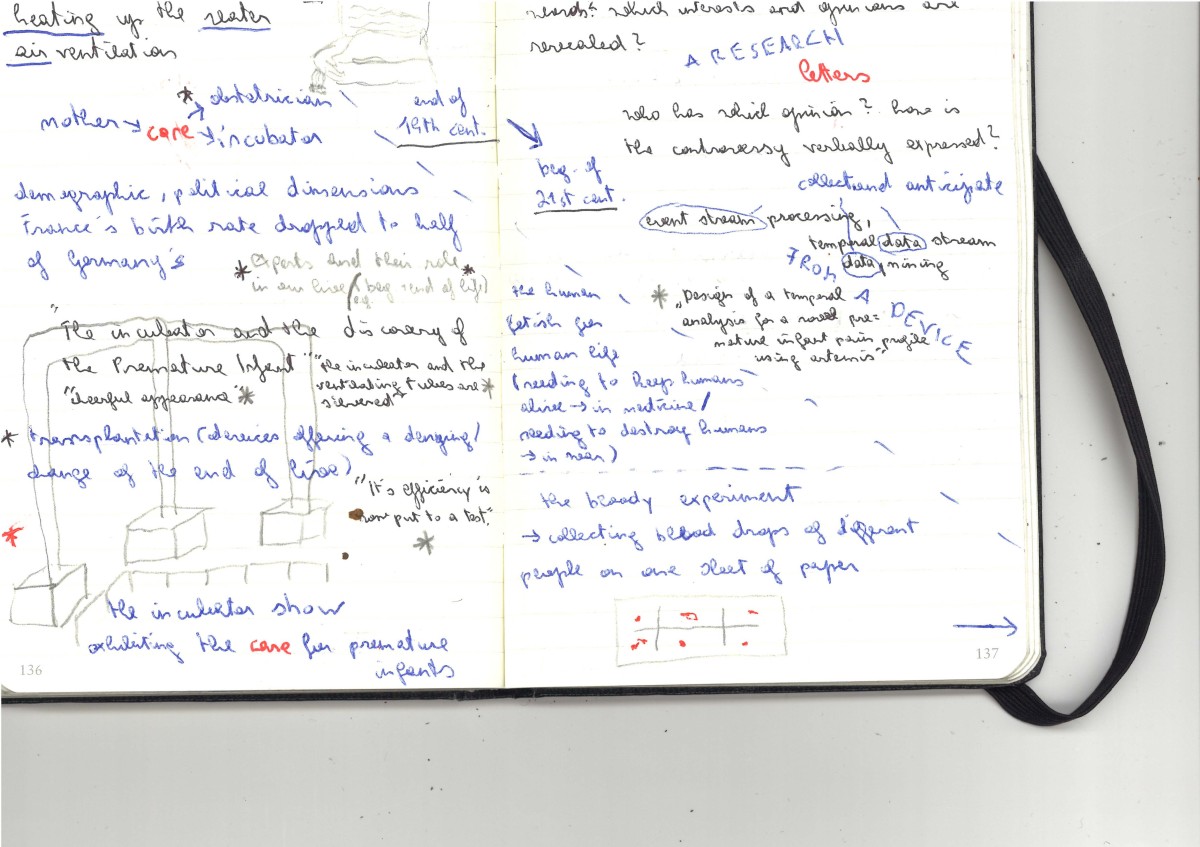 heating up the water
air ventilation
* obstetrician
mother → care → incubator
end of
19th cent.
demographic, political dimensions
France's birth rate dropped to half
of Germany's
* experts and their role *
in our lives (beg. + end of life)
"The incubator and the discovery of
the Premature Infant"
"cheerful appearance" *
"the incubator and the
ventilating tubes are *
silvered"
* transplantation (devices offering a denying/
change of the end of lives)
"It's efficiency is
now put to a test."
*
*
the incubator show
exhibiting the care for premature
infants
136
needs? which interests and opinions are
revealed?
A RESEARCH
letters
who has which opinion? how is
the controversy verbally expressed?
beg. of
21st cent.
collect and anticipate
event stream processing,
temporal data stream
FROM data mining
A DEVICE
* "Design of a temporal
analysis for a novel pre=
mature infant pain profile
using artemis"
the human
fetish for
human life
(needing to keep humans
alive → in medicine/
needing to destroy humans
→ in war)
the bloody experiment
→ collecting blood drops of different
people on one sheet of paper
137